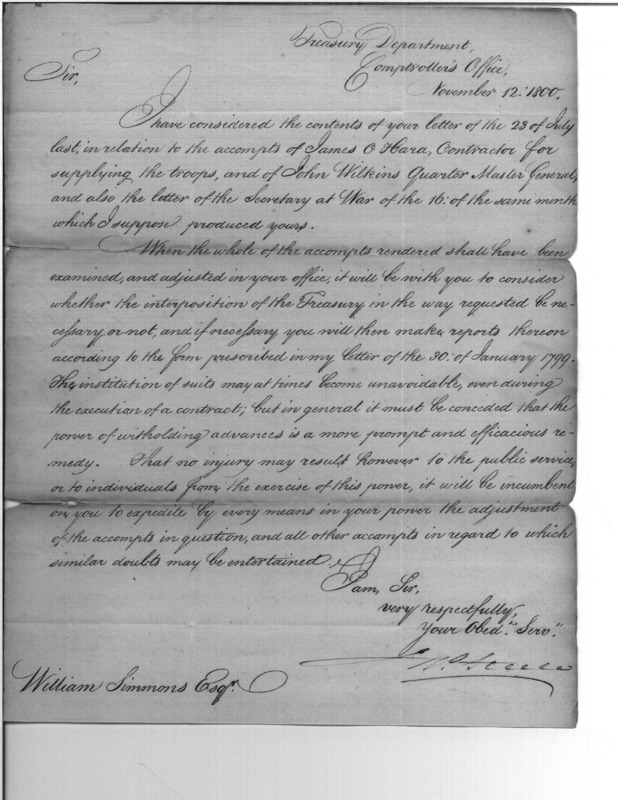 Treasury Department,
Comptroller's Office,
November 12th 1800.
Sir,
I have considered the contents of your letter of the 23 of July
last, in relation to the accompts of James O Hara, Contractor for
supplying the troops, and of John Wilkins Quarter Master General,
and also the letter of the Secretary at War of the 16th of the same month
which I suppose produced yours.
When the whole of the accompts rendered shall have been
examined, and adjusted in your office, it will be with you to consider
whether the interposition of the Treasury in the way requested be ne-
cessary or not, and if necessary you will then make reports thereon
according to the form prescribed in my letter of the 30th of January 1799.
The institution of suits may at times become unavoidable, even during
the execution of a contract; but in general it must be conceded that the
power of witholding advances is a more prompt and efficacious re-
medy. That no injury may result however to the public service,
or to individuals from the exercise of this power, it will be incumbent
on you to expedite by every means in your power the adjustment
of the accompts in question, and all other accompts in regard to which
similar doubts may be entertained.
I am, Sir,
very respectfully,
Your Obedt Servt
William Simmons Esqr.